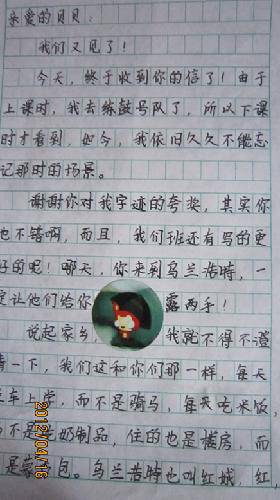 亲爱的贝贝:
我们又见了!
今天,终于收到你的信了!由于
上课时,我去练鼓号队了,所以下课
时才看到,如今,我依旧久久不能忘
记那时的场景。
谢谢你对我字迹的夸奖,其实你
也不错啊,而且,我们班还有写的更
好的呢!哪天,你来到乌兰浩特,一
定让他们给你露两手!
说起家乡,我就不得不澄
清一下,我们这和你们那一样,每天
车上学,而不是骑马,每天吃米饭,
不是奶制品,住的也是楼房,而
是蒙包。乌兰浩特也叫红城,红
2012/04/16